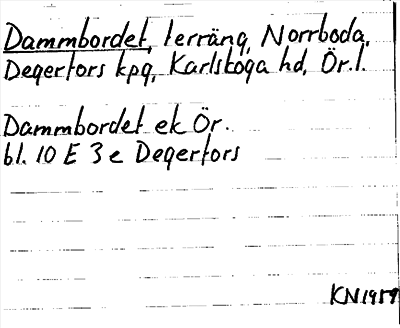 Dammbordet, terräng, Norrboda,
Degerfors kpg, Karlskoga hd, Ör.l.
Dammbordet ek Ör.
bl. 10 E 3 e Degerfors
KN1959